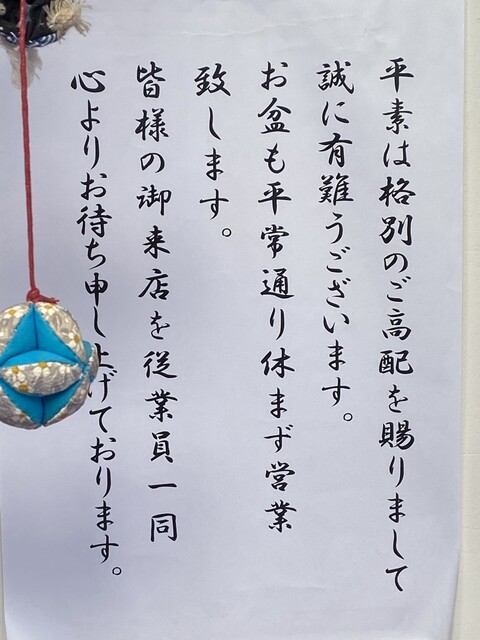 平素は格別のご高配を賜りまして
誠に有難うございます。
お盆も平常通り休まず営業
致します。
皆様の御来店を従業員一同
心よりお待ち申し上げております。